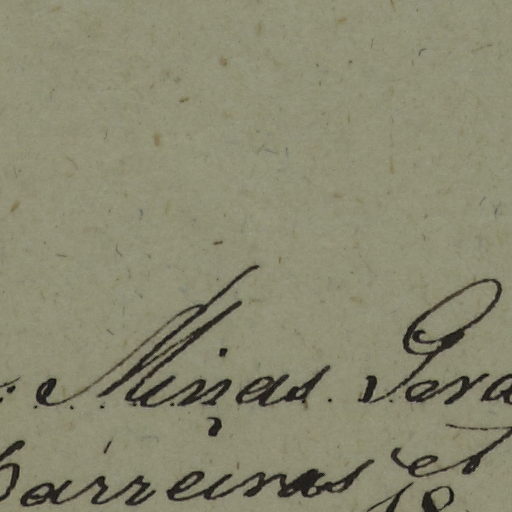 Minas Gera
Barreiras et
18